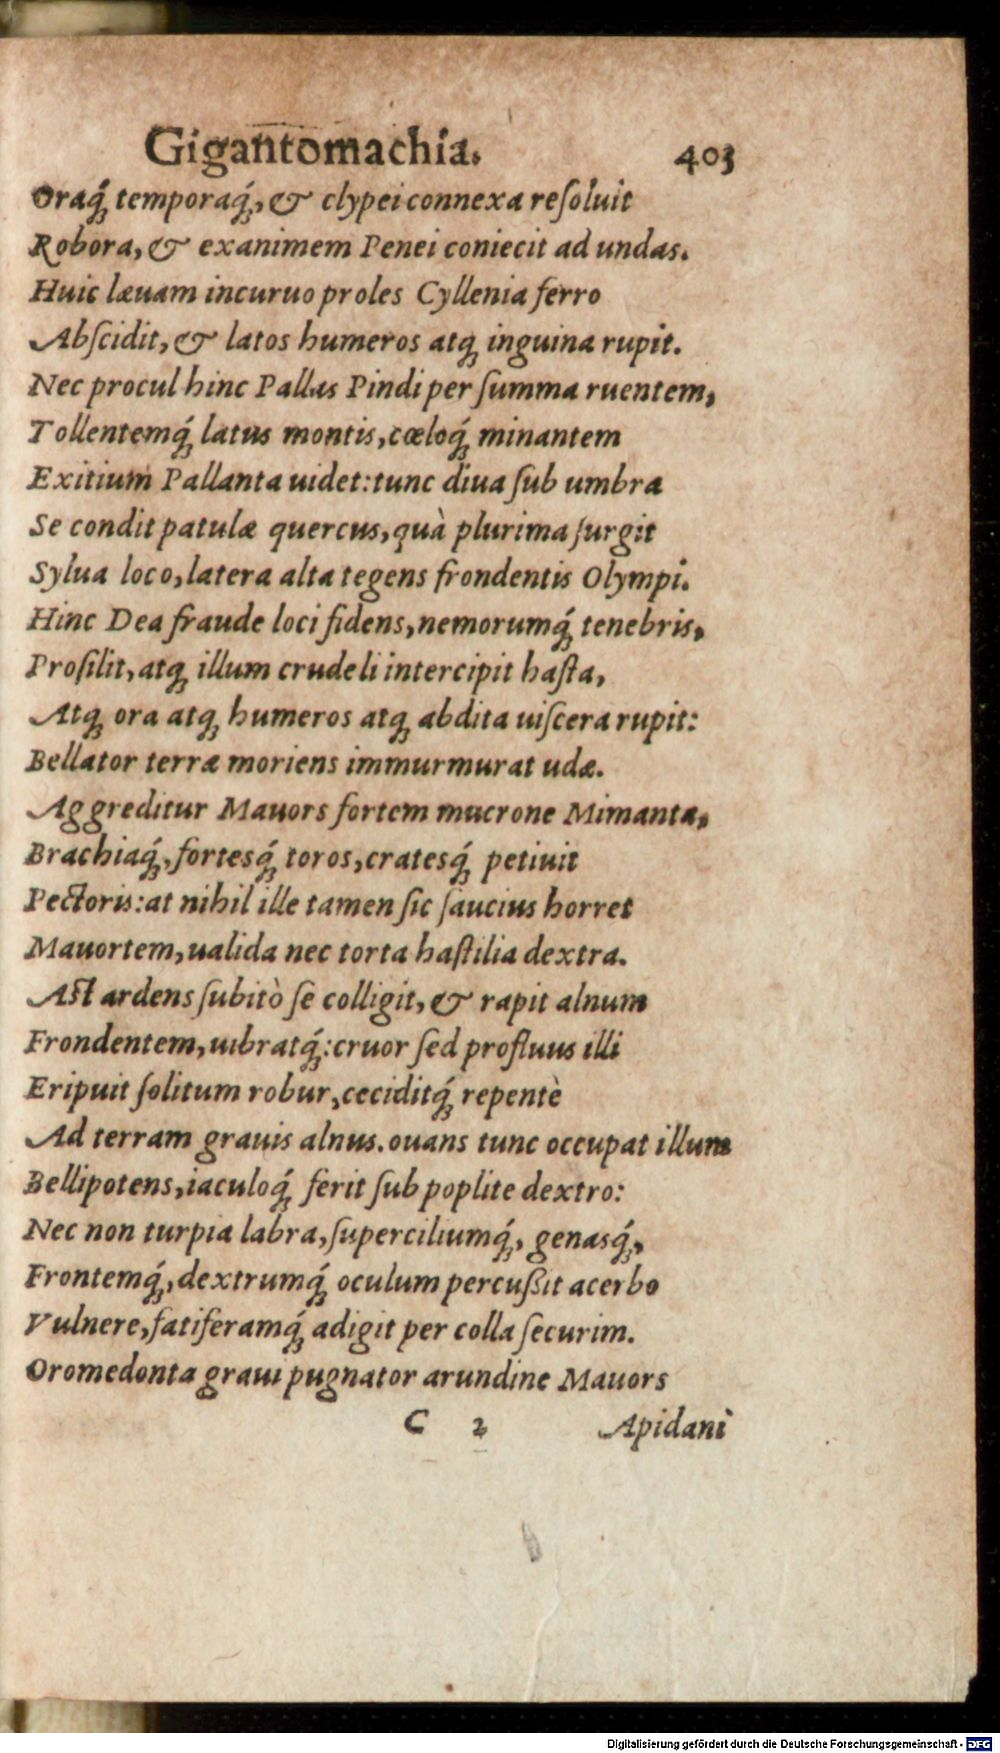 Gigantomachia. 403
Oraq́; temporaq́;, & clypei connexa reſoluit
Robora, & exanimem Penei coniecit ad undas.
Huic læuam incuruo proles Cyllenia ferro
Abſcidit, & latos humeros atq; inguina rupit.
Nec procul hinc Pallas Pindi per ſumma ruentem,
Tollentemq́; latus montis, cœloq́; minantem
Exitium Pallanta uidet: tunc diua ſub umbra
Se condit patulæ quercus, quà plurima ſurgit
Sylua loco, latera alta tegens frondentis Olympi.
Hinc Dea fraude loci fidens, nemorumq́; tenebris,
Proſilit, atq; illum crudeli intercipit haſta,
Atq; ora atq; humeros atq; abdita uiſcera rupit:
Bellator terræ moriens immurmurat udæ.
Aggreditur Mauors fortem mucrone Mimanta,
Brachiaq́;, fortesq́; toros, cratesq́; petiuit
Pectoris: at nihil ille tamen ſic ſaucius horret
Mauortem, ualida nec torta haſtilia dextra.
Aſt ardens ſubitò ſe colligit, & rapit alnum
Frondentem, uibratq́;: cruor ſed profluus illi
Eripuit ſolitum robur, ceciditq́; repentè
Ad terram grauis alnus. ouans tunc occupat illum
Bellipotens, iaculoq́; ferit ſub poplite dextro:
Nec non turpia labra, ſuperciliumq́;, genasq́;,
Frontemq́;, dextrumq́; oculum percuſsit acerbo
Vulnere, fatiferamq́; adigit per colla ſecurim.
Oromedonta graui pugnator arundine Mauors
C 2 Apidani
Digitalisierung gefördert durch die Deutsche Forschungsgemeinschaft - DFG